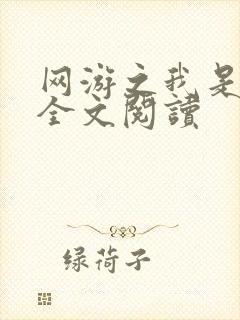 网游之我是
全文閱讀
绿荷子